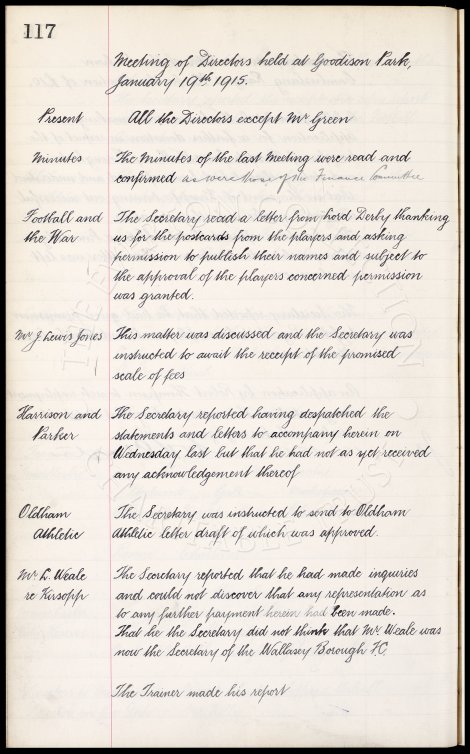 117
Meeting of Directors held at Goodison Park,
January 19th 1915.
Present All the Directors except Mr Green
Minutes The Minutes of the last Meeting were read and
confirmed as were those of the Finance Committee
Football and The Secretary read a letter from Lord Derby thanking
the War us for the postcards from the players and asking
permission to publish their names and subject to
the approval of the players concerned permission
was granted.
Mr J Lewis Jones This matter was discussed and the Secretary was
instructed to await the receipt of the promised
scale of fees
Harrison and The Secretary reported having despatched the
Parker statements and letters to accompany herein on
Wednesday last but that he had not as yet received
any acknowledgement thereof
Oldham The Secretary was instructed to send to Oldham
Athletic Athletic letter draft of which was approved.
Mr L. Weale The Secretary reported that he had made inquiries
re Kirsopp and could not discover that any representation as
to any further payment herein had been made.
That he the Secretary did not think that Mr Weale was
now the Secretary of the Wallasey Borough FC.
The Trainer made his report